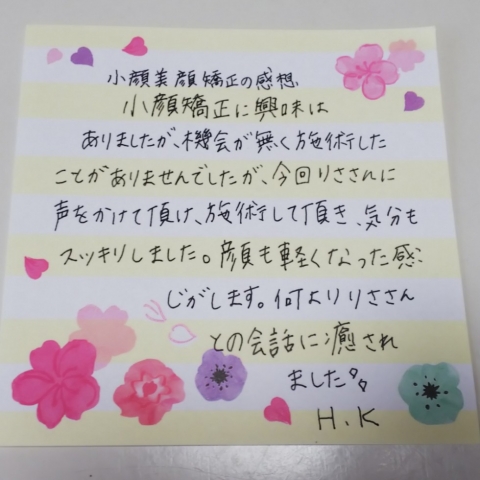 小顔美顔矯正の感想
小顔矯正に興味は
ありましたが、機会が無く施術した
ことがありませんでしたが、今回りささんに
声をかけて頂け、施術して頂き、気分も
スッキリしました。顔も軽くなった感
じがします。何よりりささん
との会話に癒され
ました
H.K